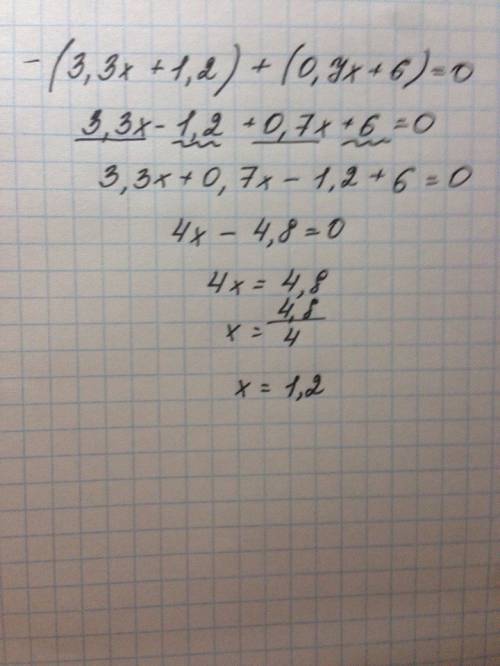 -(3,3x+1,2)+(0,7x+6)=0
3,3x-1,2+0,7x+6=0
3,3x+0,7x-1,2+6=0
4x-4,8=0
4x=4,8
x=4,8/4
x=1,2